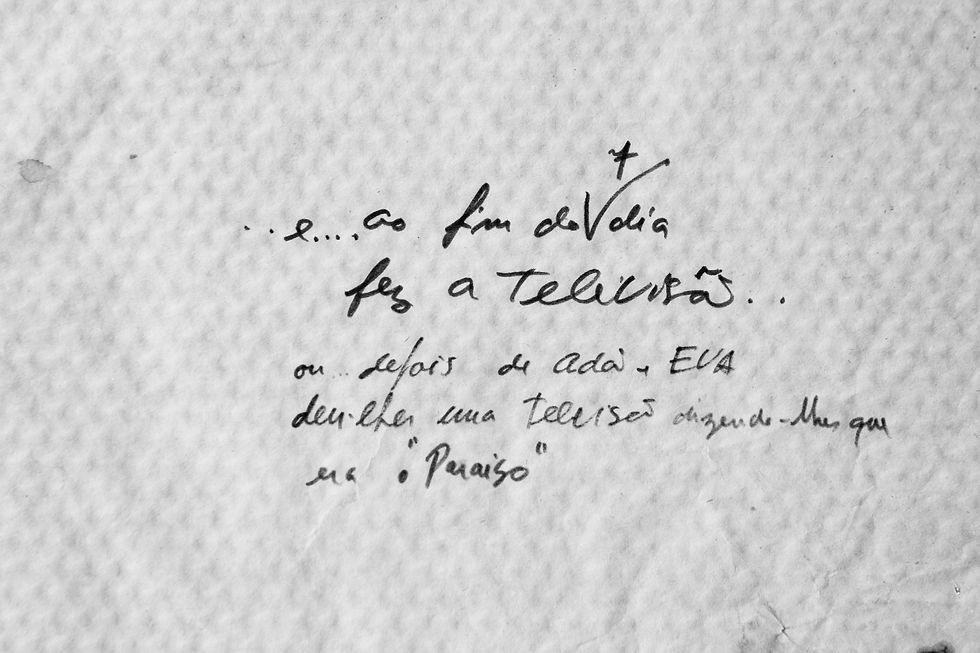 ..e.... ao fim do 7 dia
fez a Televisão...
ou... depois de adão e EVA
deu-lhes uma televisão dizendo-lhes que
era "o Paraiso"